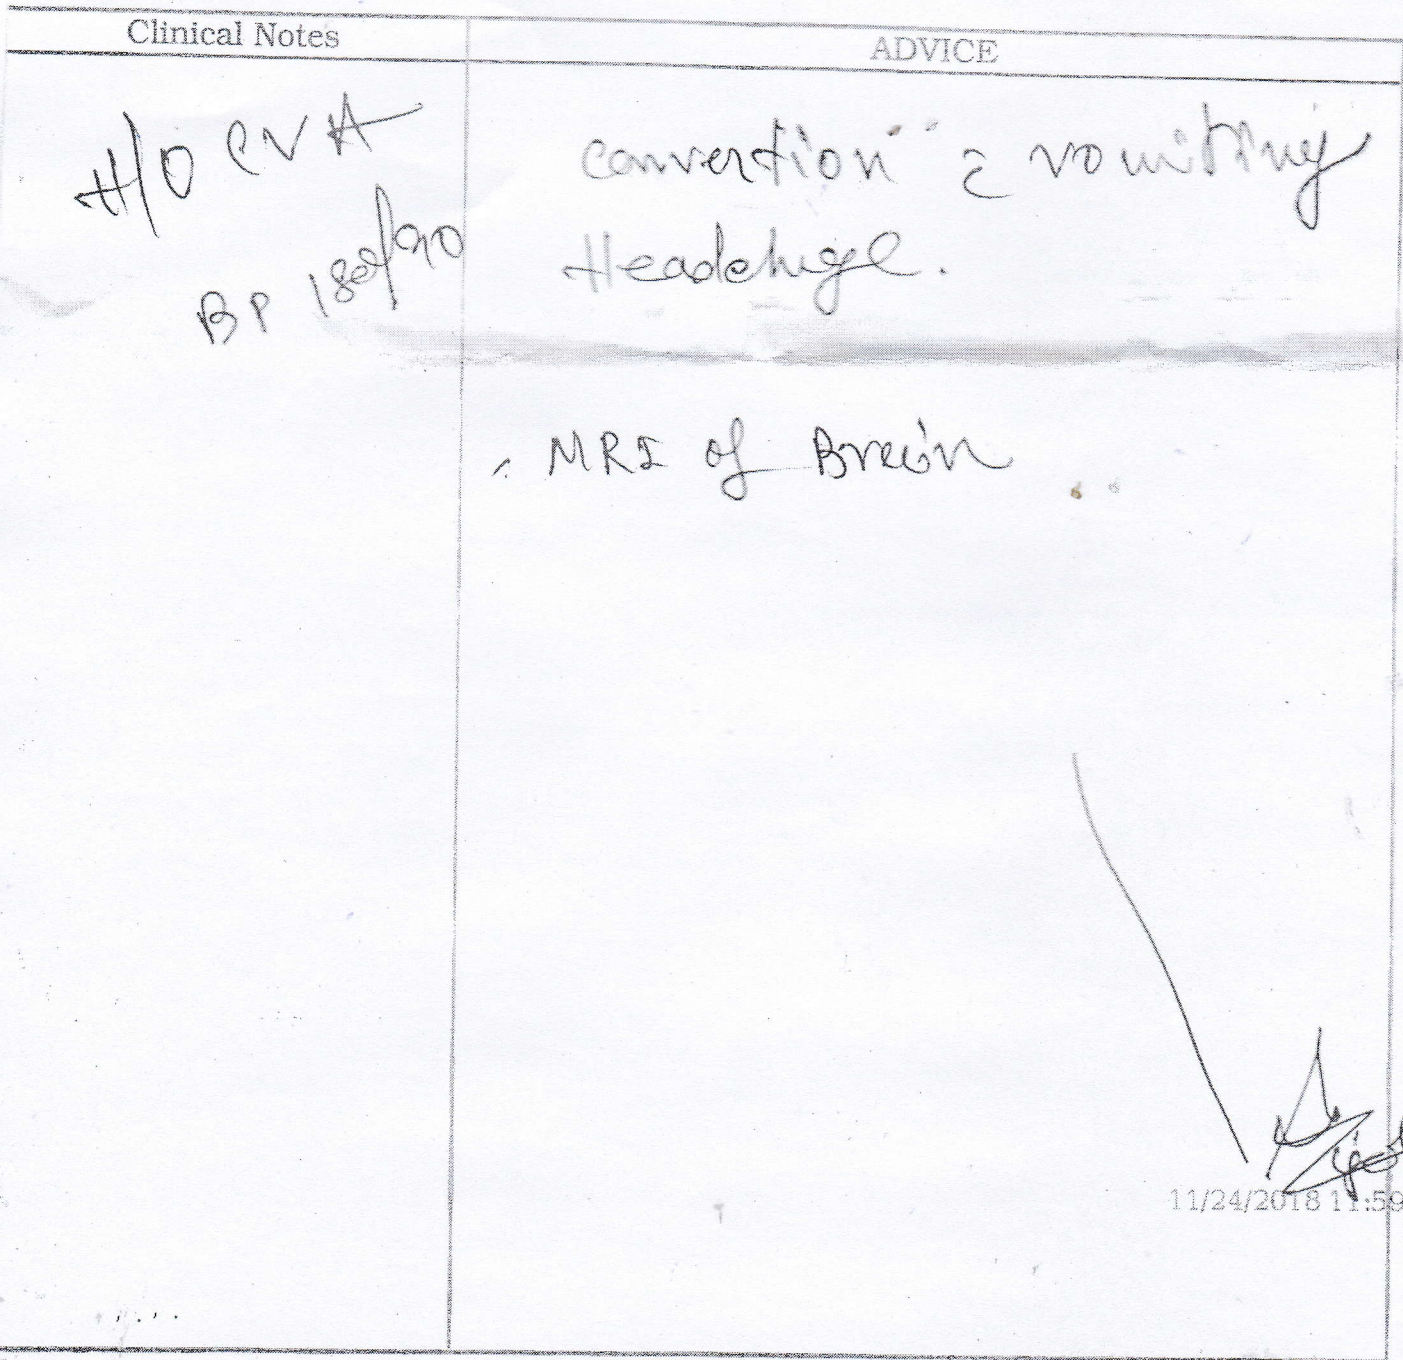 Clinical Notes
ADVICE
H/O CVA
BP 180/90
convertion c vomiting
Headchige.
MRI of Brain
11/24/2018 11:59